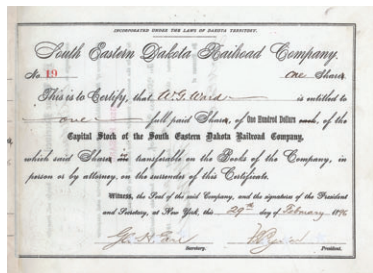 INCORPORATED UNDER THE LAWS OF DAKOTA TERRITORY.
South Eastern Dakota Railroad Company.
No. 19 one Share
This is to Certify, that W.G. Ward is entitled to
one full paid Share, of One Hundred Dollars each, of the
Capital Stock of the South Eastern Dakota Railroad Company,
which said Share is transferable on the Books of the Company, in
person or by attorney, on the surrender of this Certificate.
Witness, the Seal of the said Company, and the signatures of the President
and Secretary, at New York, this 29th day of February 1896
Secretary. President.